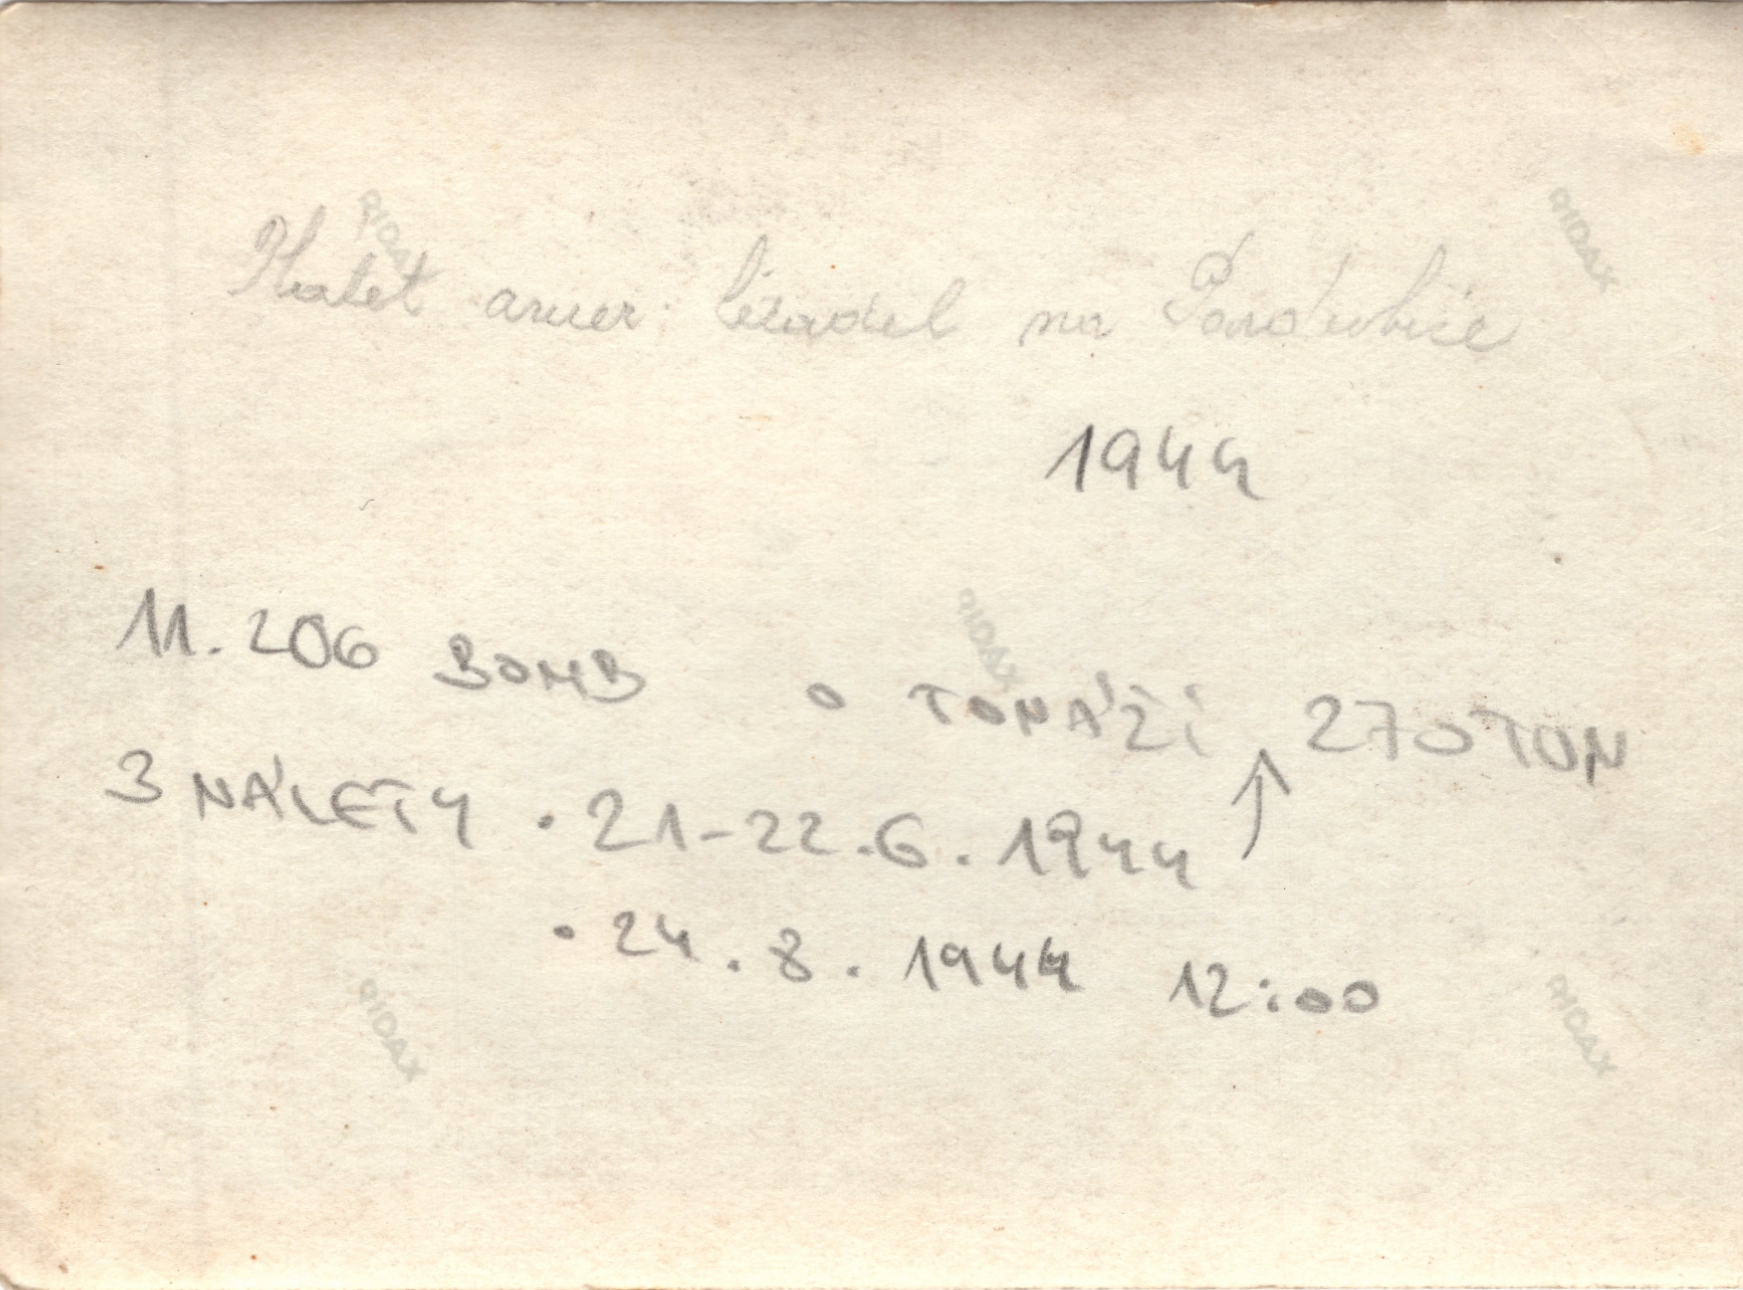 Nálet amer. letadel na Pardubice
1944
11.206 BOMB o TONÁŽI 270 TUN
3 NÁLETY • 21-22.6.1944 ↑
• 24.8.1944 12:00
RIDAX
RIDAX
RIDAX
RIDAX
RIDAX